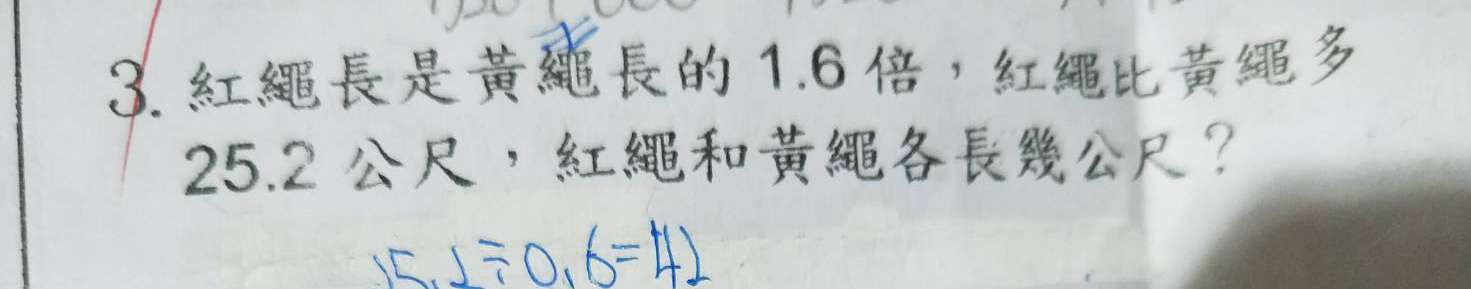 3. 紅繩長是黃繩長的 1.6 倍，紅繩比黃繩多
25.2 公尺，紅繩和黃繩各長幾公尺？
25.2÷0.6=42